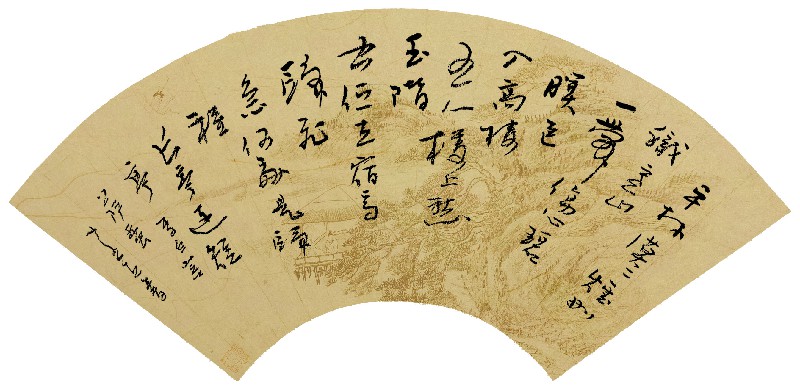 平林漠〻煙如
織寒山
一帶傷心碧
暝色
入高樓
有人樓上愁
玉階
空佇立宿鳥
歸飛
急何處是歸
程
長亭連短
亭